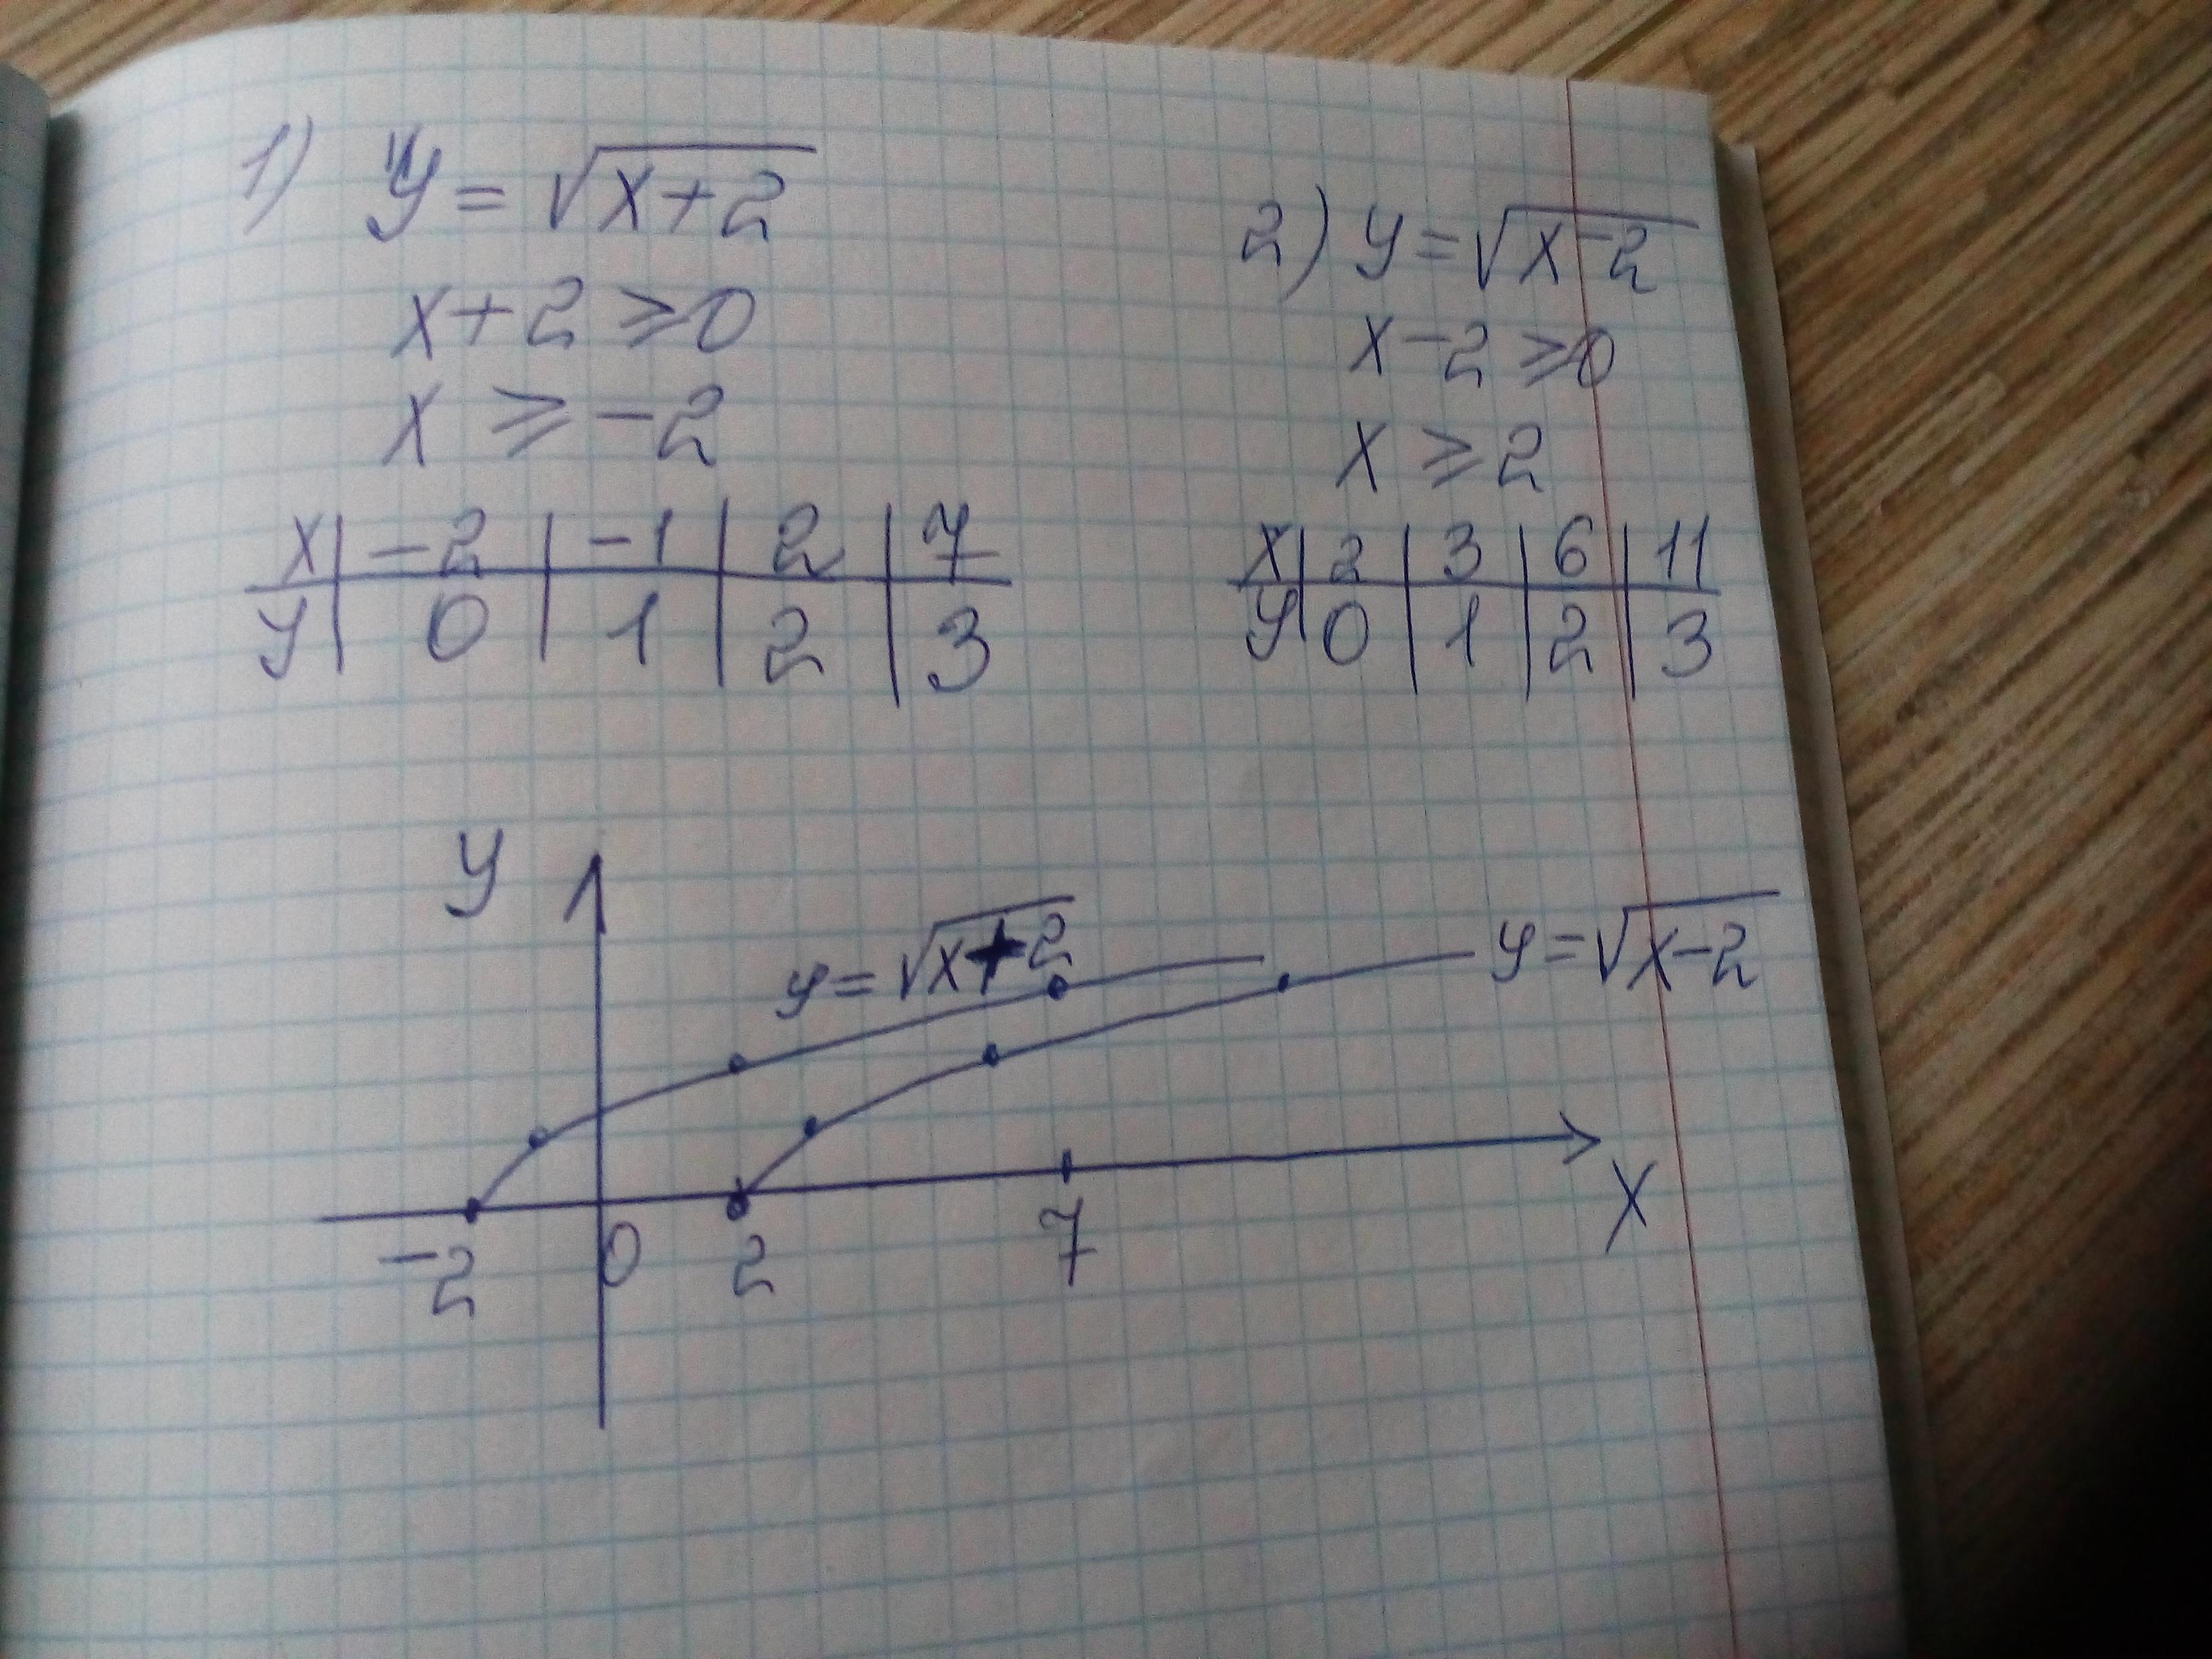 1) y = √x+2
x+2 ≥ 0
x ≥ -2
x | -2 | -1 | 2 | 7
y | 0 | 1 | 2 | 3
2) y = √x-2
x-2 ≥ 0
x ≥ 2
x | 2 | 3 | 6 | 11
y | 0 | 1 | 2 | 3
y
y = √x+2
y = √x-2
-2
0
2
7
x